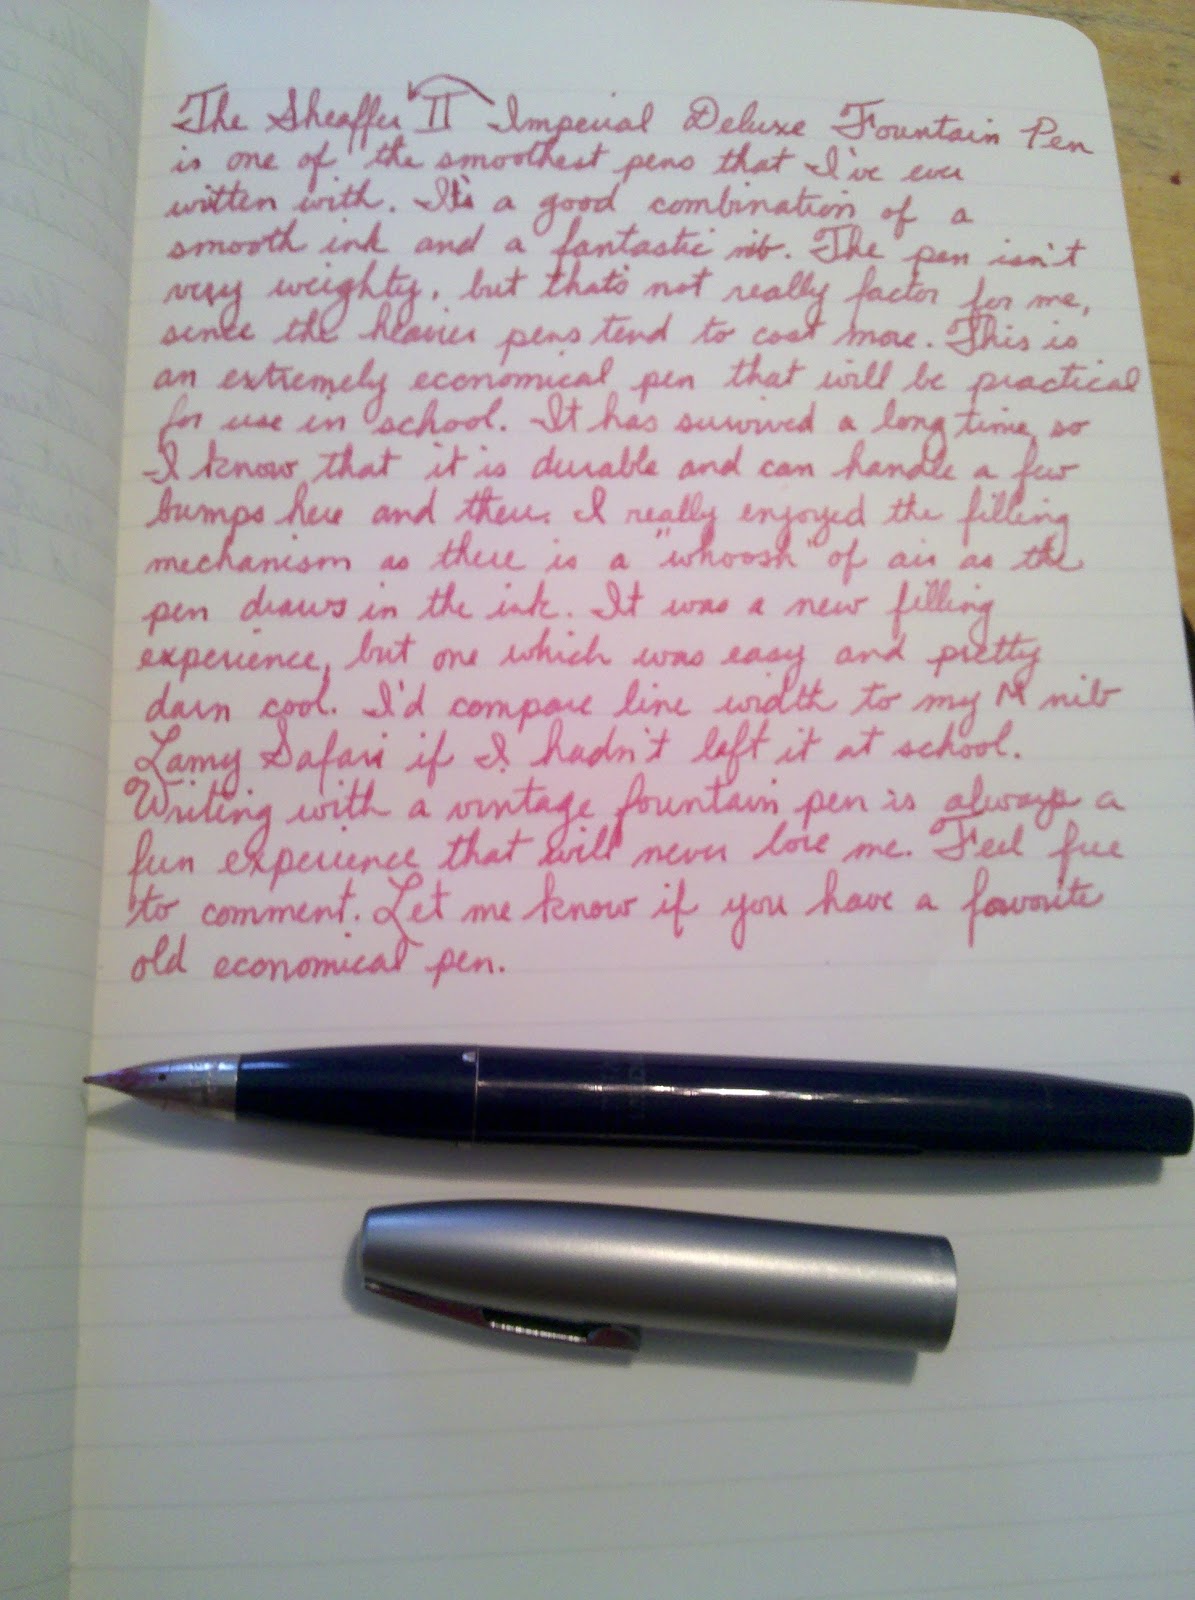 The Sheaffer II Imperial Deluxe Fountain Pen
is one of the smoothest pens that I've ever
written with. It's a good combination of a
smooth ink and a fantastic nib. The pen isn't
very weighty, but that's not really factor for me,
since the heavier pens tend to cost more. This is
an extremely economical pen that will be practical
for use in school. It has survived a long time, so
I know that it is durable and can handle a few
bumps here and there. I really enjoyed the filling
mechanism as there is a "whoosh" of air as the
pen draws in the ink. It was a new filling
experience, but one which was easy and pretty
darn cool. I'd compare line width to my M nib
Lamy Safari if I hadn't left it at school.
Writing with a vintage fountain pen is always a
fun experience that will never lose me. Feel free
to comment. Let me know if you have a favorite
old economical pen.